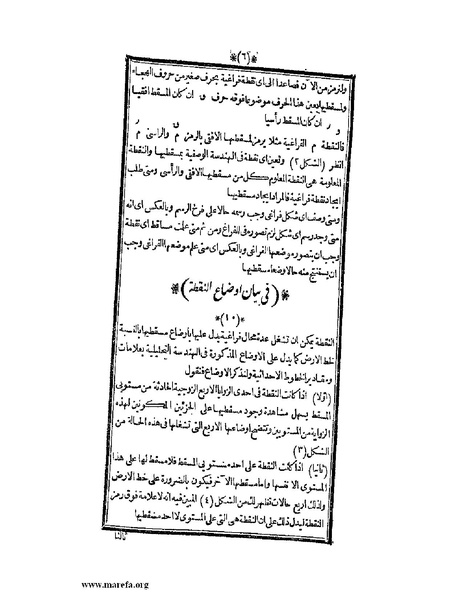 *(٦)*
ولنرمز من الآن فصاعدا الى اى نقطة فراغية بحرف صغير من حروف الهجاء
ولمسقطيها بعين هذا الحرف موضوعا فوقه حرف و ان كان المسقط افقيا
و ر ان كان المسقط رأسيا
فالنقطة م الفراغية مثلا يرمز لمسقطيها الافقى بالرمز م والرأسى م
انظر (الشكل ٢) وتعين اى نقطة فى الهندسة الوصفية بمسقطيها والنقطة
المعلومة هى النقطة المعلوم كل من مسقطيها الافقى والرأسى ومتى طلب
ايجاد نقطة فراغية فالمراد ايجاد مسقطيها
ومتى وصف اى شكل فراغى وجب رسمه حالا على فرخ الرسم وبالعكس اى انه
متى وجد رسم اى شكل لزم تصوره فى الفراغ ومن ثم متى علمت مساقط اى نقطة
وجب ان يتصور وضعها الفراغى وبالعكس اى متى علم موضعها الفراغى وجب
ان يستنتج منه حالا وضعا مسقطيها
*(فى بيان اوضاع النقطة)*
*(١٠)*
النقطة يمكن ان تشغل عدة محال فراغية يدل عليها بأوضاع مسقطيها بالنسبة
خط الارض كما يدل على الاوضاع المذكورة فى الهندسة التحليلية بعلامات
ومقادير الخطوط الاحداثية ولنذكر الاوضاع فنقول
(اولا) اذا كانت النقطة فى احدى الزوايا الاربع الزوجية الحادثة من مستويى
المسقط يسهل مشاهدة وجود مسقطيها على الجزئين المكونين لهذه
الزاوية من المستويين وتتضح اوضاعها الاربع التى تشغلها فى هذه الحالة من
الشكل (٣)
(ثانيا) اذا كانت النقطة على احد مستويى المسقط فلا مسقط لها على هذا
المستوى الا نفسها واما مسقطها الآخر فيكون بالضرورة على خط الارض
ولذلك اربع حالات تظهر لك من الشكل (٤) المبين فيه انه لا علامة فوق رمز
النقطة ليدل ذلك على ان النقطة هى التى على المستوى لا احد مسقطيها
ثالثا
www.marefa.org